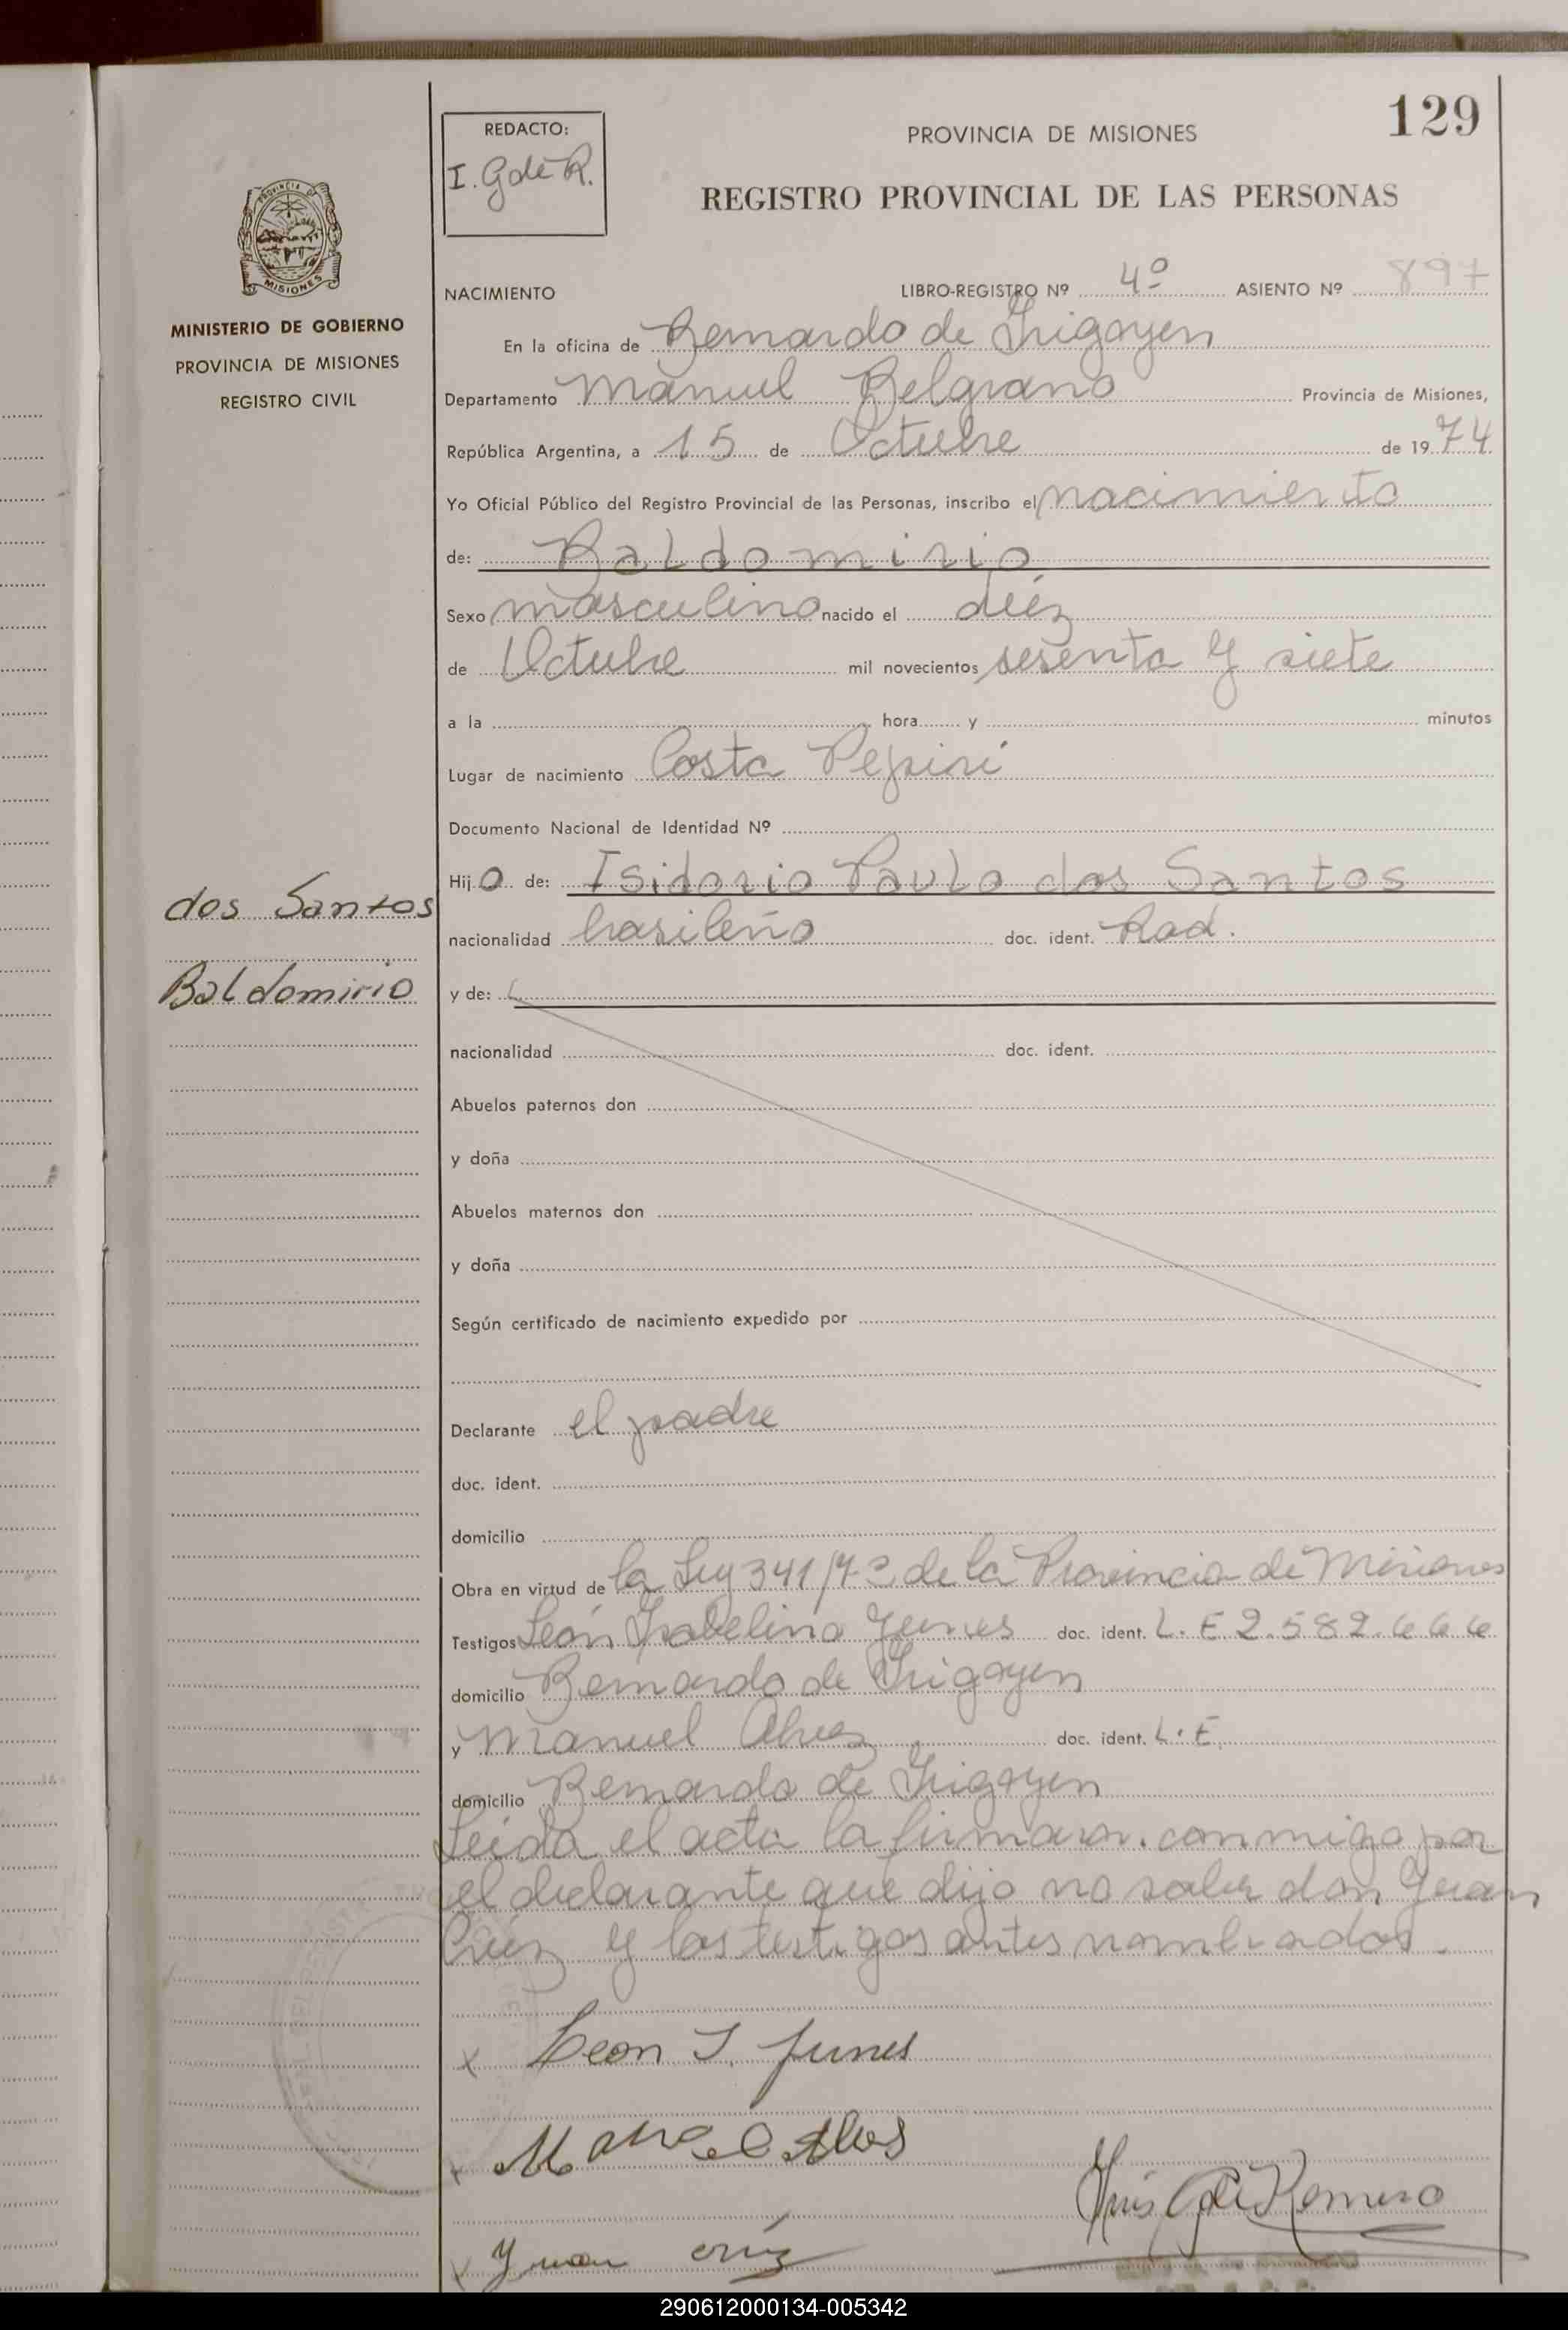 129
REDACTO:
I. G de R.
PROVINCIA DE MISIONES
REGISTRO PROVINCIAL DE LAS PERSONAS
PROVINCIA DE
MISIONES
MINISTERIO DE GOBIERNO
PROVINCIA DE MISIONES
REGISTRO CIVIL
NACIMIENTO LIBRO-REGISTRO Nº 4º ASIENTO Nº 897
En la oficina de Bernardo de Irigoyen
Departamento Manuel Belgrano Provincia de Misiones,
República Argentina, a 15 de Octubre de 1974
Yo Oficial Público del Registro Provincial de las Personas, inscribo el nacimiento
de: Baldomirio
Sexo masculino nacido el diéz
de Octubre mil novecientos sesenta y siete
a la hora y minutos
Lugar de nacimiento Costa Pepirí
Documento Nacional de Identidad Nº
Hijo de: Isidorio Paulo dos Santos
dos Santos
nacionalidad brasileño doc. ident. Rad.
Baldomirio
y de:
nacionalidad doc. ident.
Abuelos paternos don
y doña
Abuelos maternos don
y doña
Según certificado de nacimiento expedido por
Declarante el padre
doc. ident.
domicilio
Obra en virtud de la Ley 341/7 de la Provincia de Misiones
Testigos León Isabelino Junes doc. ident. L. E 2.582.666
domicilio Bernardo de Irigoyen
y Manuel Alves doc. ident. L. E.
domicilio Bernardo de Irigoyen
Leida el acta la firmaron conmigo por
el declarante que dijo no saber don Juan
Cruz y los testigos antes nombrados.
x Leon I. Junes
x Manuel Alves
x Juan cruz
G de Romero
290612000134-005342